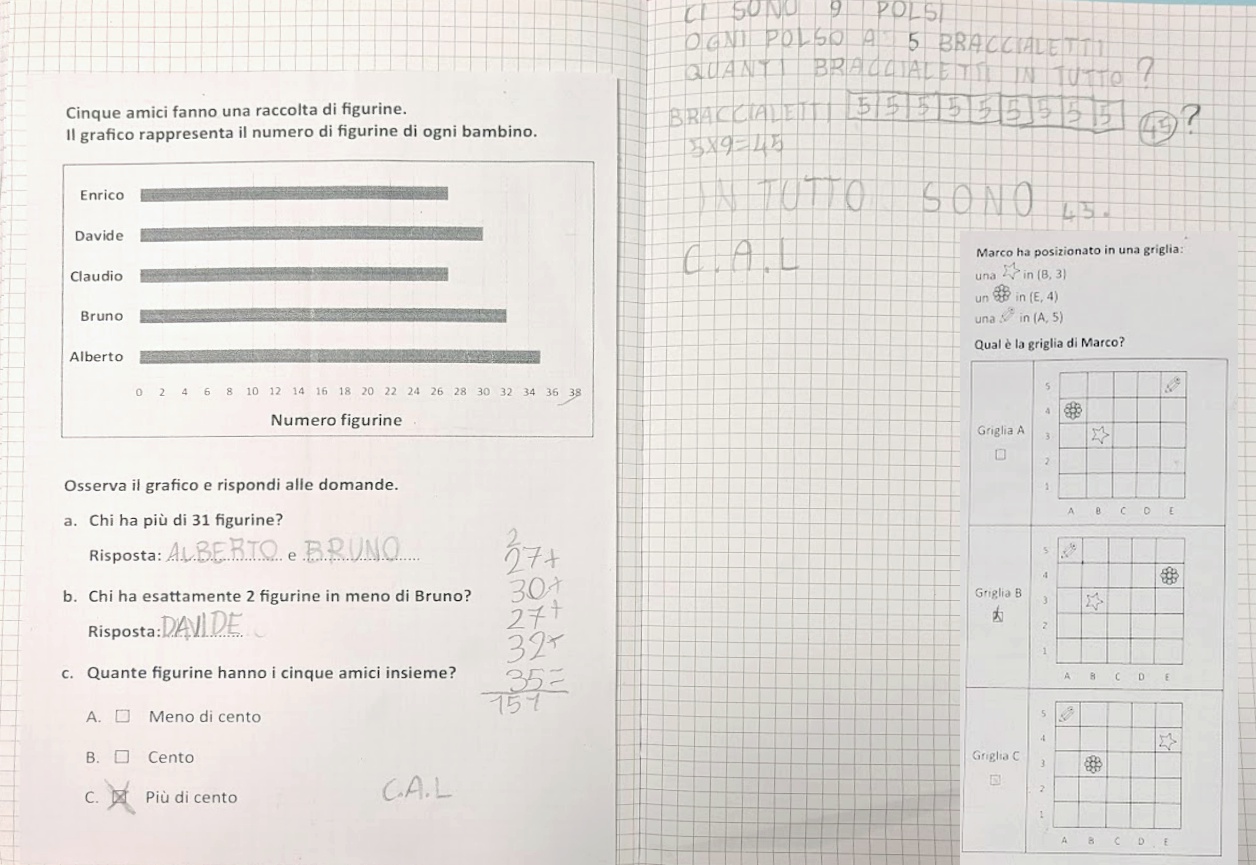 Cinque amici fanno una raccolta di figurine.
Il grafico rappresenta il numero di figurine di ogni bambino.
Enrico
Davide
Claudio
Bruno
Alberto
0 2 4 6 8 10 12 14 16 18 20 22 24 26 28 30 32 34 36 38
Numero figurine
Osserva il grafico e rispondi alle domande.
a. Chi ha più di 31 figurine?
Risposta: ALBERTO e BRUNO
b. Chi ha esattamente 2 figurine in meno di Bruno?
Risposta: DAVIDE
c. Quante figurine hanno i cinque amici insieme?
A. Meno di cento
B. Cento
C. Più di cento
2
27+
30+
27+
32+
35=
151
C.A.L
CI SONO 9 POLSI
OGNI POLSO A 5 BRACCIALETTI
QUANTI BRACCIALETTI IN TUTTO?
BRACCIALETTI 5 5 5 5 5 5 5 5 5 45?
5x9=45
IN TUTTO SONO 45.
C.A.L
Marco ha posizionato in una griglia:
una in (B, 3)
un in (E, 4)
una in (A, 5)
Qual è la griglia di Marco?
Griglia A
5
4
3
2
1
A B C D E
Griglia B
5
4
3
2
1
A B C D E
Griglia C
5
4
3
2
1
A B C D E